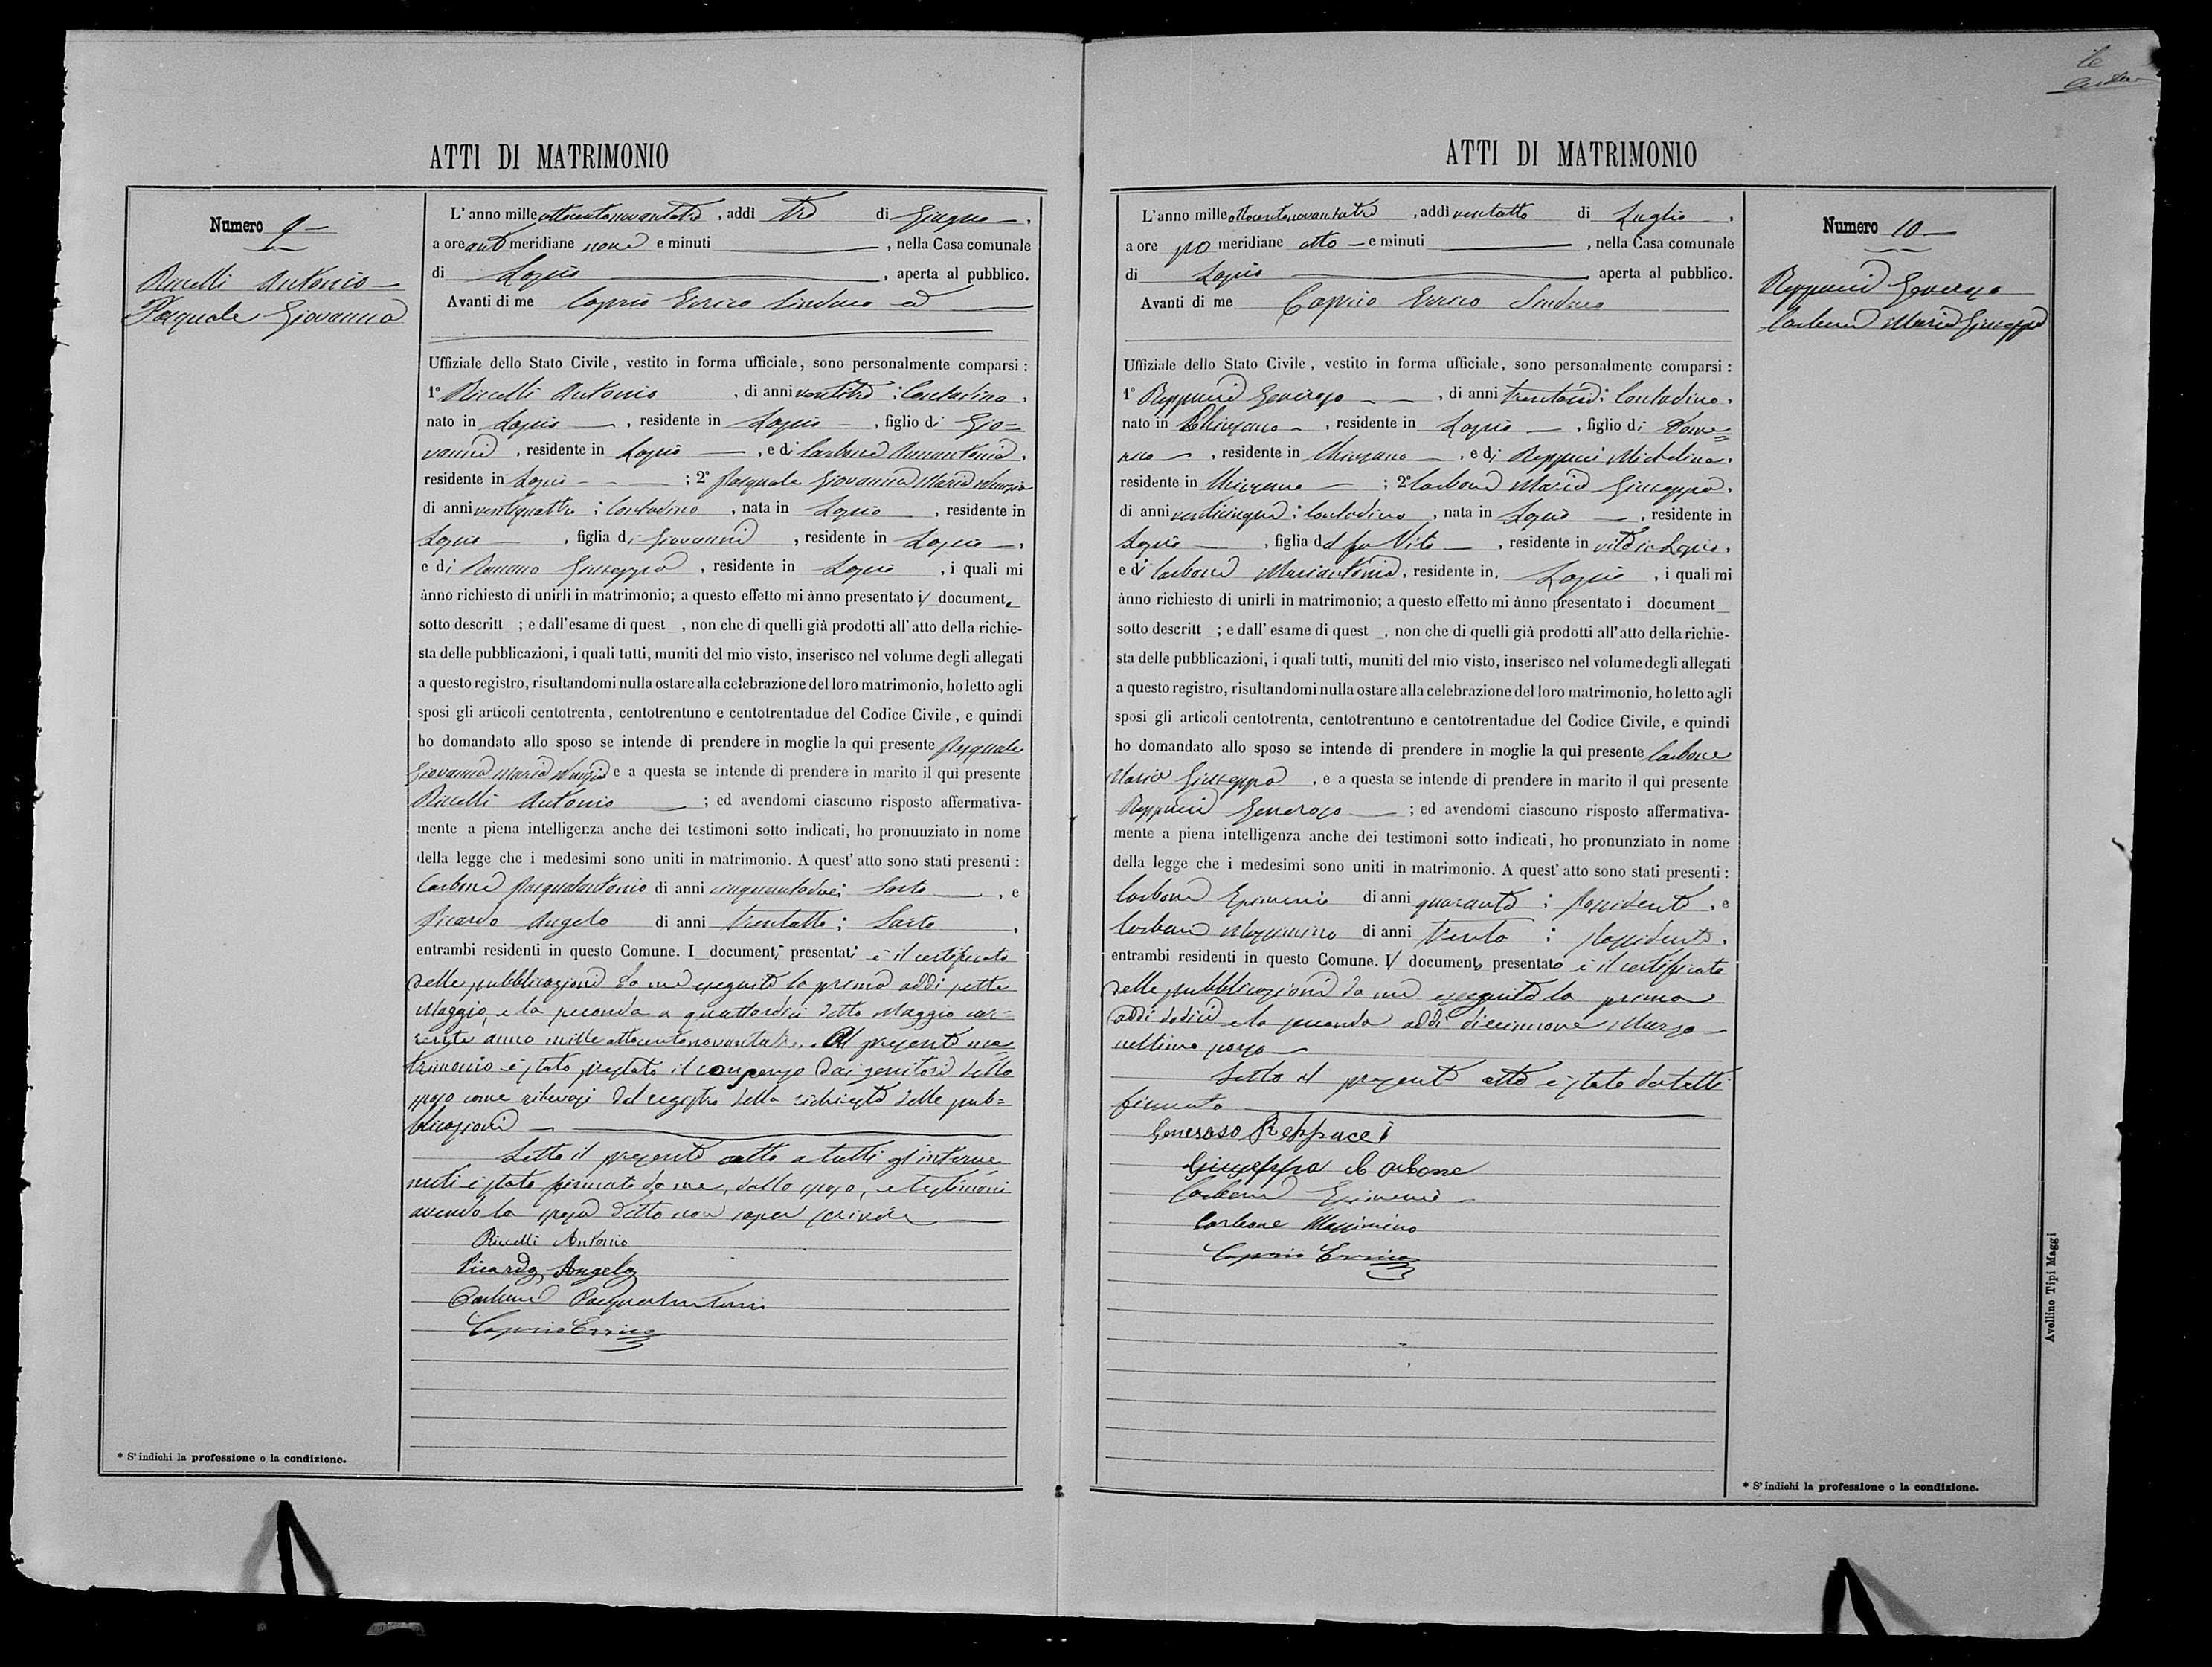 ATTI DI MATRIMONIO
Numero 9
Riccelli Antonio
Pasquale Giovanna
L'anno mille ottocentonovantatre, addì tre di Giugno,
a ore ante meridiane nove e minuti , nella Casa comunale
di Lapio , aperta al pubblico.
Avanti di me Caprio Errico Sindaco ed
Uffiziale dello Stato Civile, vestito in forma ufficiale, sono personalmente comparsi:
1° Riccelli Antonio , di anni ventitre; Contadino,
nato in Lapio , residente in Lapio , figlio di Gio=
vanni , residente in Lapio , e di Carbone Annantonia,
residente in Lapio ; 2° Pasquale Giovanna Maria Nunzia
di anni ventiquattro; Contadina , nata in Lapio , residente in
Lapio , figlia di Giovanni , residente in Lapio,
e di Romano Giuseppa , residente in Lapio , i quali mi
ànno richiesto di unirli in matrimonio; a questo effetto mi ànno presentato i/ documento
sotto descritt ; e dall'esame di quest , non che di quelli già prodotti all'atto della richie-
sta delle pubblicazioni, i quali tutti, muniti del mio visto, inserisco nel volume degli allegati
a questo registro, risultandomi nulla ostare alla celebrazione del loro matrimonio, ho letto agli
sposi gli articoli centotrenta, centotrentuno e centotrentadue del Codice Civile, e quindi
ho domandato allo sposo se intende di prendere in moglie la qui presente Pasquale
Giovanna Maria Nunzia e a questa se intende di prendere in marito il qui presente
Riccelli Antonio ; ed avendomi ciascuno risposto affermativa-
mente a piena intelligenza anche dei testimoni sotto indicati, ho pronunziato in nome
della legge che i medesimi sono uniti in matrimonio. A quest'atto sono stati presenti:
Carbone Pasqualantonio di anni cinquantadue; Sarto , e
Picardo Angelo di anni trentotto; Sarto ,
entrambi residenti in questo Comune. I documenti presentati è il certificato
delle pubblicazioni da me eseguite la prima addì sette
Maggio, e la seconda a quattordici detto Maggio cor=
rente anno mille ottocentonovantatre. Al presente ma
trimonio è stato prestato il consenso dai genitori dello
sposo come rilevasi dal registro della richiesta delle pub=
blicazioni
Letto il presente atto a tutti gl'interve
nuti è stato firmato da me, dallo sposo, e testimoni
avendo la sposa detto non saper scrivere
Riccelli Antonio
Picardo Angelo
Carbone Pasqualantonio
Caprio Errico
* S'indichi la professione o la condizione.
ATTI DI MATRIMONIO
Numero 10
Reppucci Generoso
Carbone Maria Giuseppa
L'anno mille ottocentonovantatre , addì ventotto di Luglio ,
a ore po meridiane otto e minuti , nella Casa comunale
di Lapio aperta al pubblico.
Avanti di me Caprio Errico Sindaco
Uffiziale dello Stato Civile, vestito in forma ufficiale, sono personalmente comparsi:
1° Reppucci Generoso , di anni ; Contadino,
nato in Chiusano , residente in Lapio , figlio di Dome=
nico , residente in Chiusano , e di Reppucci Michelina,
residente in Chiusano ; 2° Carbone Maria Giuseppa,
di anni venticinque; Contadina , nata in Lapio , residente in
Lapio , figlia del fu Vito , residente in vita in Lapio,
e di Carbone Mariantonia, residente in Lapio , i quali mi
ànno richiesto di unirli in matrimonio; a questo effetto mi ànno presentato i document
sotto descritt ; e dall'esame di quest , non che di quelli già prodotti all'atto della richie-
sta delle pubblicazioni, i quali tutti, muniti del mio visto, inserisco nel volume degli allegati
a questo registro, risultandomi nulla ostare alla celebrazione del loro matrimonio, ho letto agli
sposi gli articoli centotrenta, centotrentuno e centotrentadue del Codice Civile, e quindi
ho domandato allo sposo se intende di prendere in moglie la qui presente Carbone
Maria Giuseppa , e a questa se intende di prendere in marito il qui presente
Reppucci Generoso ; ed avendomi ciascuno risposto affermativa-
mente a piena intelligenza anche dei testimoni sotto indicati, ho pronunziato in nome
della legge che i medesimi sono uniti in matrimonio. A quest'atto sono stati presenti:
Carbone Epimenio di anni quaranta; Possidente, e
Carbone Massimino di anni trenta; Possidente,
entrambi residenti in questo Comune. I/ documento presentato è il certificato
delle pubblicazioni da me eseguite la prima
addì dodici e la seconda addì diciannove Marzo
ultimo passo
Letto il presente atto è stato da tutti
firmato
Generoso Reppucci
Giuseppa Carbone
Carbone Epimenio
Carbone Massimino
Caprio Errico
* S'indichi la professione o la condizione.
Avellino Tipi Maggi